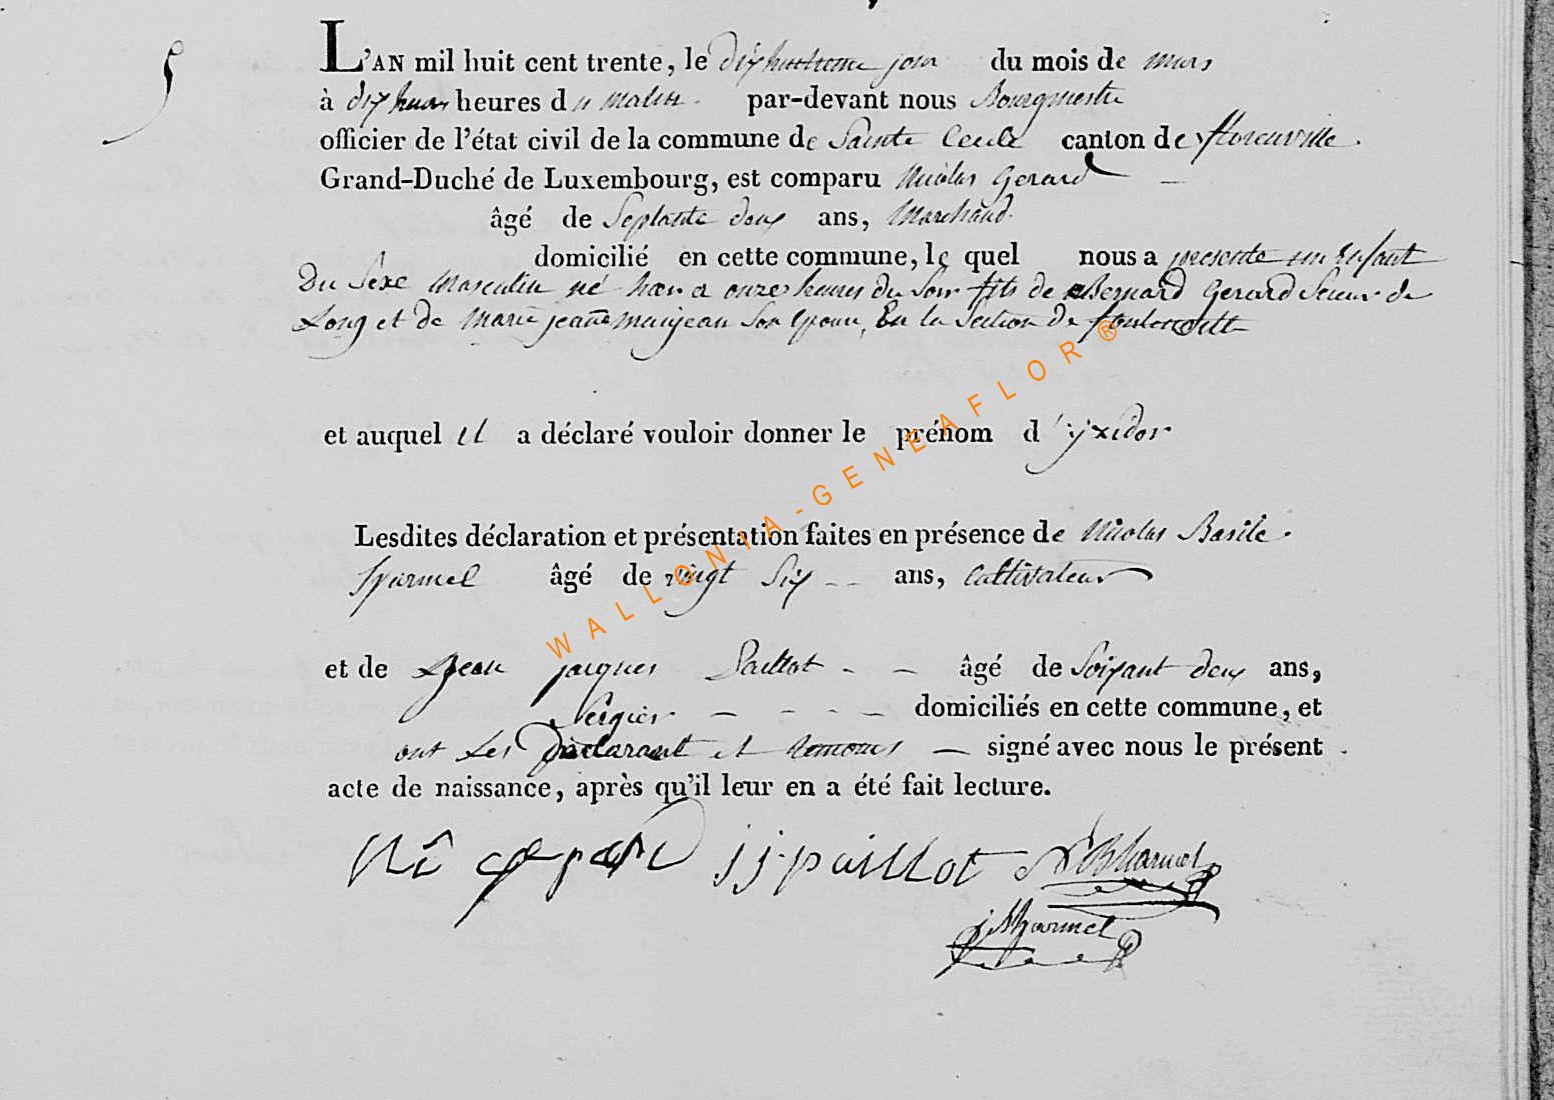 5
L'AN mil huit cent trente, le dixhuitieme jour du mois de mars
à dix heures du matin par-devant nous Bourgmestre
officier de l'état civil de la commune de Sainte Cecile canton de florenville.
Grand-Duché de Luxembourg, est comparu Nicolas Gerard
âgé de Septante deux ans, Marchand
domicilié en cette commune, le quel nous a presente un Enfant
Du Sexe masculin né hier a onze heures du Soir fils de Bernard Gerard Scieur de
Long et de Marie jeanne maujean Son Epouse, En la Section de
et auquel il a déclaré vouloir donner le prénom d'yxidor
Lesdites déclaration et présentation faites en présence de Nicolas Basile
âgé de vingt Six ans, Cultivateur
et de Jean jacques Paillot âgé de Soixant deux ans,
Bergier domiciliés en cette commune, et
ont Les Déclarant et temoins signé avec nous le présent
acte de naissance, après qu'il leur en a été fait lecture.
j j paillot
WALLONIA-GENEAFLOR®